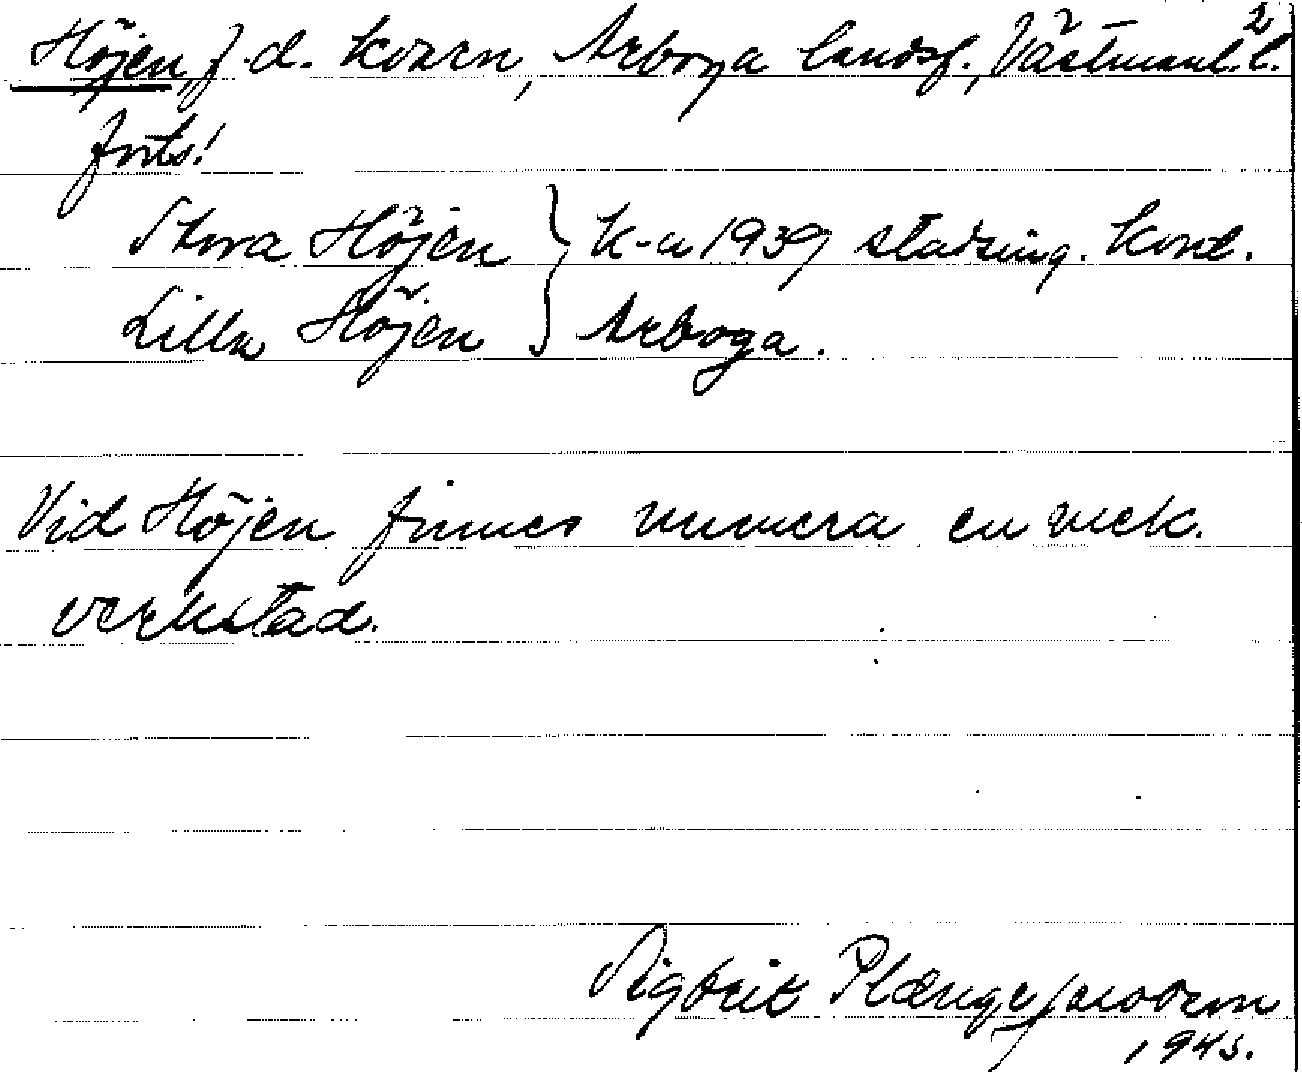 Höjen, f.d. kvarn, Arboga landsf., Västmanl. l. 2
forts!
Stora Höjen } k-a 1939 stadsing. kont.
Lilla Höjen } Arboga.
Vid Höjen finnes numera en mek.
verkstad.
Sigbrit Plænge Jacobson
1945.